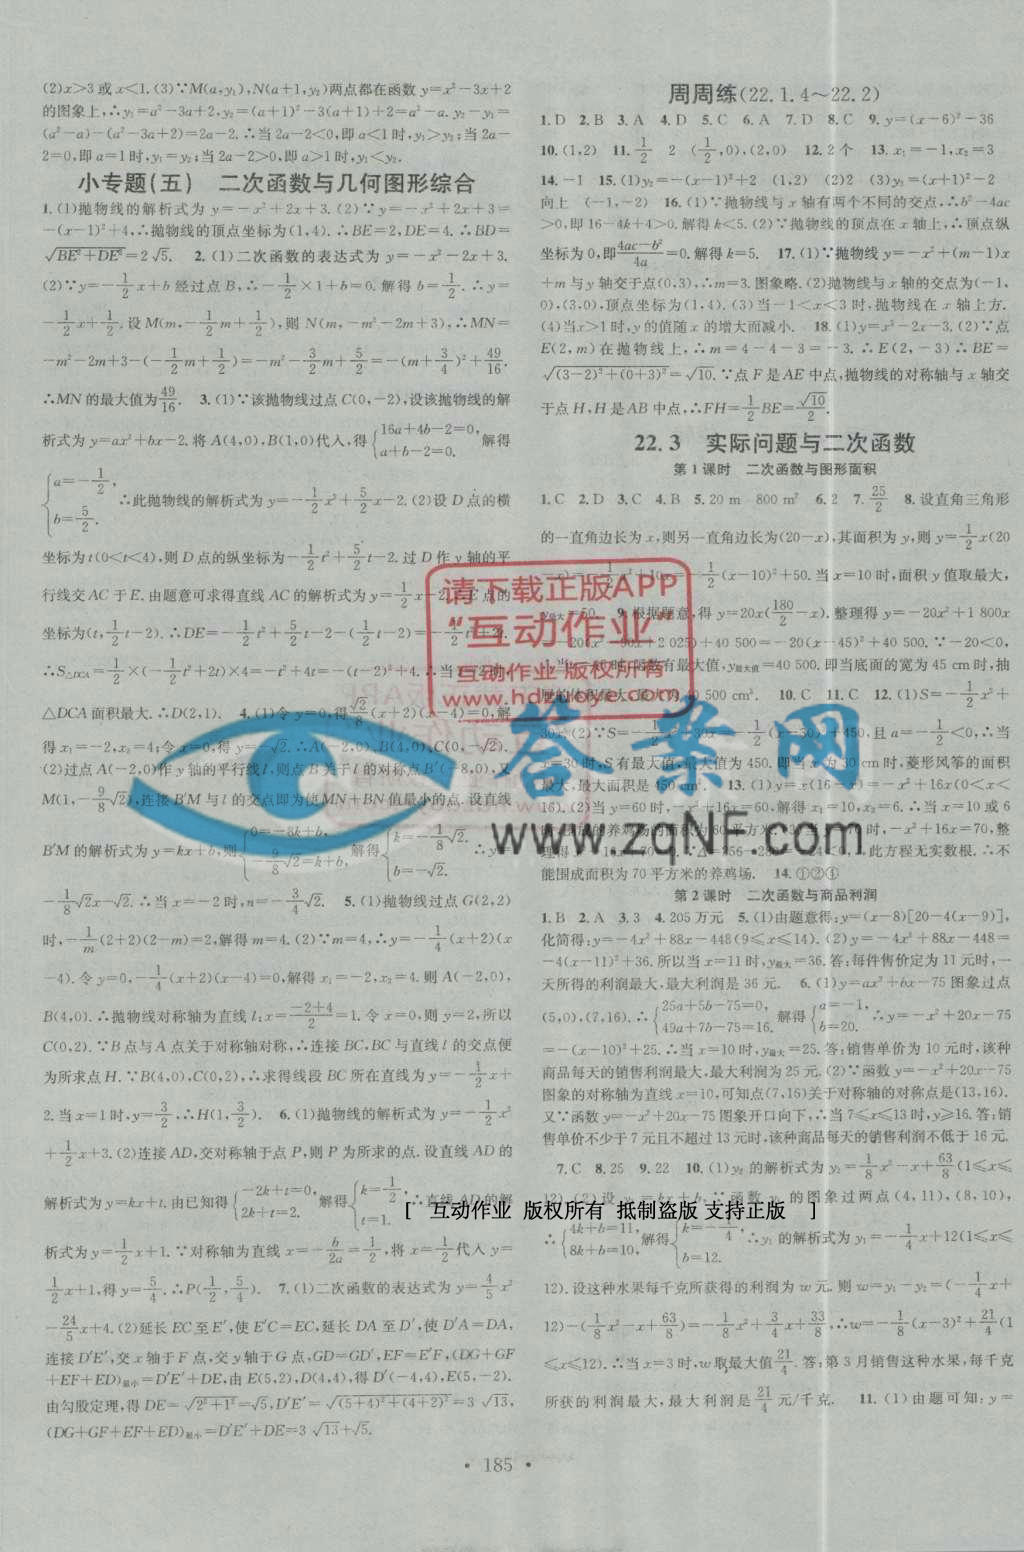 (2)x>3或x<1.(3)∵M(a,y₁),N(a+1,y₂)两点都在函数y=x²-3x+2
的图象上,∴y₁=a²-3a+2,y₂=(a+1)²-3(a+1)+2=a²-a.y₂-y₁=
(a²-a)-(a²-3a+2)=2a-2.∴当2a-2<0,即a<1时,y₁>y₂;当2a-
2=0,即a=1时,y₁=y₂;当2a-2>0,即a>1时,y₁<y₂.
小专题(五) 二次函数与几何图形综合
1.(1)抛物线的解析式为y=-x²+2x+3.(2)∵y=-x²+2x+3=
-(x-1)²+4,∴抛物线的顶点坐标为(1,4).∴BE=2,DE=4.∴BD=
√(BE²+DE²)=2√5. 2.(1)二次函数的表达式为y=-x²-2x+3.
(2)∵y=-1/2x+b经过点B,∴-1/2×1+b=0.解得b=1/2.∴y=
-1/2x+1/2.设M(m,-1/2m+1/2),则N(m,-m²-2m+3),∴MN=
-m²-2m+3-(-1/2m+1/2)=-m²-3/2m+5/2=-(m+3/4)²+49/16.
∴MN的最大值为49/16. 3.(1)∵该抛物线过点C(0,-2),设该抛物线的解
析式为y=ax²+bx-2.将A(4,0),B(1,0)代入,得{16a+4b-2=0, a+b-2=0. 解得
{a=-1/2, b=5/2. ∴此抛物线的解析式为y=-1/2x²+5/2x-2.(2)设D点的横
坐标为t(0<t<4),则D点的纵坐标为-1/2t²+5/2t-2.过D作y轴的平
行线交AC于E.由题意可求得直线AC的解析式为y=1/2x-2.∴E点的
坐标为(t,1/2t-2).∴DE=-1/2t²+5/2t-2-(1/2t-2)=-1/2t²+2t.
∴S△DCA=1/2×(-1/2t²+2t)×4=-t²+4t=-(t-2)²+4.∴当t=2时,
△DCA面积最大.∴D(2,1). 4.(1)令y=0,得√2/8(x+2)(x-4)=0,解
得x₁=-2,x₂=4;令x=0,得y=-√2.∴A(-2,0),B(4,0),C(0,-√2).
(2)过点A(-2,0)作y轴的平行线l,则点B关于l的对称点B′(-8,0),又
M(1,-9/8√2),连接B′M与l的交点即为使MN+BN值最小的点.设直线
B′M的解析式为y=kx+b,则{0=-8k+b, -9/8√2=k+b, 解得{k=-1/8√2, b=-√2. ∴y=
-1/8√2x-√2.∴当x=-2时,n=-3/4√2. 5.(1)抛物线过点G(2,2)
时,-1/m(2+2)(2-m)=2,解得m=4.(2)∵m=4,∴y=-1/4(x+2)(x
-4).令y=0,-1/4(x+2)(x-4)=0,解得x₁=-2,x₂=4.则A(-2,0),
B(4,0).∴抛物线对称轴为直线l:x=(-2+4)/2=1.令x=0,则y=2,所以
C(0,2).∵B点与A点关于对称轴对称,∴连接BC,BC与直线l的交点便
为所求点H.∵B(4,0),C(0,2),∴求得线段BC所在直线为y=-1/2x+
2.当x=1时,y=3/2,∴H(1,3/2). 6.(1)抛物线的解析式为y=-1/2x²
+1/2x+3.(2)连接AD,交对称轴于点P,则P为所求的点.设直线AD的
解析式为y=kx+t.由已知得{-2k+t=0, 2k+t=2. 解得{k=1/2, t=1. ∴直线AD的解
析式为y=1/2x+1.∵对称轴为直线x=-b/2a=1/2,将x=1/2代入y=
1/2x+1,得y=5/4.∴P(1/2,5/4). 7.(1)二次函数的表达式为y=4/5x²
-24/5x+4.(2)延长EC至E′,使E′C=EC,延长DA至D′,使D′A=DA,
连接D′E′,交x轴于F点,交y轴于G点,GD=GD′,EF=E′F,(DG+GF
+EF+ED)最小=D′E′+DE,由E(5,2),D(4,4),得D′(-4,4),E(5,-2).
由勾股定理,得DE=√(2²+1²)=√5,D′E′=√((5+4)²+(4+2)²)=3√13,
(DG+GF+EF+ED)最小=D′E′+DE=3√13+√5.
周周练(22.1.4～22.2)
1.D 2.B 3.A 4.D 5.C 6.A 7.D 8.C 9.y=(x-6)²-36
10.(1,2) 11.1/2 2 (1/2,0),(2,0) 12.2个 13.x₁=-1,x₂=3
14.-1 15.(1)y₂=-(x-1)²+2 (1,2) (2)2 (3)y₃=(x+1)²-2
向上 (-1,-2) 16.(1)∵抛物线与x轴有两个不同的交点,∴b²-4ac
>0,即16-4k+4>0.解得k<5.(2)∵抛物线的顶点在x轴上,∴顶点纵
坐标为0,即(4ac-b²)/4a=0.解得k=5. 17.(1)∵抛物线y=-x²+(m-1)x
+m与y轴交于点(0,3),∴m=3.图象略.(2)抛物线与x轴的交点为(-1,
0),(3,0),顶点坐标为(1,4).(3)当-1<x<3时,抛物线在x轴上方.
(4)当x>1时,y的值随x的增大而减小. 18.(1)y=x²-2x-3.(2)∵点
E(2,m)在抛物线上,∴m=4-4-3=-3.∴E(2,-3)∴BE=
√((3-2)²+(0+3)²)=√10.∵点F是AE中点,抛物线的对称轴与x轴交
于点H,H是AB中点,∴FH=1/2BE=√10/2.
22.3 实际问题与二次函数
第1课时 二次函数与图形面积
1.C 2.D 3.C 4.B 5.20 m 800 m² 6.2 7.25/2 8.设直角三角形
的一直角边长为x,则另一直角边长为(20-x),其面积为y,则y=1/2x(20
-x)=-1/2x²+10x=-1/2(x-10)²+50.当x=10时,面积y值取最大,
y最大=50. 9.根据题意,得y=20x(180/2-x).整理得y=-20x²+1 800x
=-20(x²-90x+2 025)+40 500=-20(x-45)²+40 500.∵-20<0,
∴当x=45时,函数有最大值,y最大值=40 500.即当底面的宽为45 cm时,抽
屉的体积最大,最大为40 500 cm³. 10.C 11.C 12.(1)S=-1/2x²+
30x.(2)∵S=-1/2x²+30x=-1/2(x-30)²+450,且a=-1/2<0,∴当
x=30时,S有最大值,最大值为450.即当x为30 cm时,菱形风筝的面积
最大,最大面积是450 cm². 13.(1)y=x(16-x)=-x²+16x(0<x<
16).(2)当y=60时,-x²+16x=60,解得x₁=10,x₂=6.∴当x=10或6
时,围成的养鸡场的面积为60平方米.(3)当y=70时,-x²+16x=70,整
理得x²-16x+70=0.∵Δ=256-280=-24<0,∴此方程无实数根.∴不
能围成面积为70平方米的养鸡场. 14.①②①
第2课时 二次函数与商品利润
1.B 2.A 3.3 4.205万元 5.(1)由题意得:y=(x-8)[20-4(x-9)],
化简得:y=-4x²+88x-448(9≤x≤14).(2)y=-4x²+88x-448=
-4(x-11)²+36.所以当x=11时,y最大=36.答:每件售价定为11元时,一
天所得的利润最大,最大利润是36元. 6.(1)y=ax²+bx-75图象过点
(5,0),(7,16).∴{25a+5b-75=0, 49a+7b-75=16. 解得{a=-1, b=20. ∴y=-x²+20x-75
=-(x-10)²+25.∴当x=10时,y最大=25.答:销售单价为10元时,该种
商品每天的销售利润最大,最大利润为25元.(2)∵函数y=-x²+20x-75
图象的对称轴为直线x=10,可知点(7,16)关于对称轴的对称点是(13,16).
又∵函数y=-x²+20x-75图象开口向下,∴当7≤x≤13时,y≥16.答:销
售单价不少于7元且不超过13元时,该种商品每天的销售利润不低于16元.
7.C 8.25 9.22 10.(1)y₂的解析式为y₂=1/8x²-x+63/8(1≤x≤
12).(2)设y₁=kx+b,∵函数y₁的图象过两点(4,11),(8,10),
∴{4k+b=11, 8k+b=10. 解得{k=-1/4, b=12. ∴y₁的解析式为y₁=-1/4x+12(1≤x≤
12).设这种水果每千克所获得的利润为w元.则w=y₁-y₂=(-1/4x+
12)-(1/8x²-x+63/8)=-1/8x²+3/4x+33/8.∴w=-1/8(x-3)²+21/4(1
≤x≤12).∴当x=3时,w取最大值21/4.答:第3月销售这种水果,每千克
所获的利润最大,最大利润是21/4元/千克. 11.(1)由题可知:y=
• 185 •
请下载正版APP
“互动作业”
互动作业·版权所有
www.hdzuoye.com
答案网
www.zqNF.com
[ 互动作业 版权所有 抵制盗版 支持正版 ]